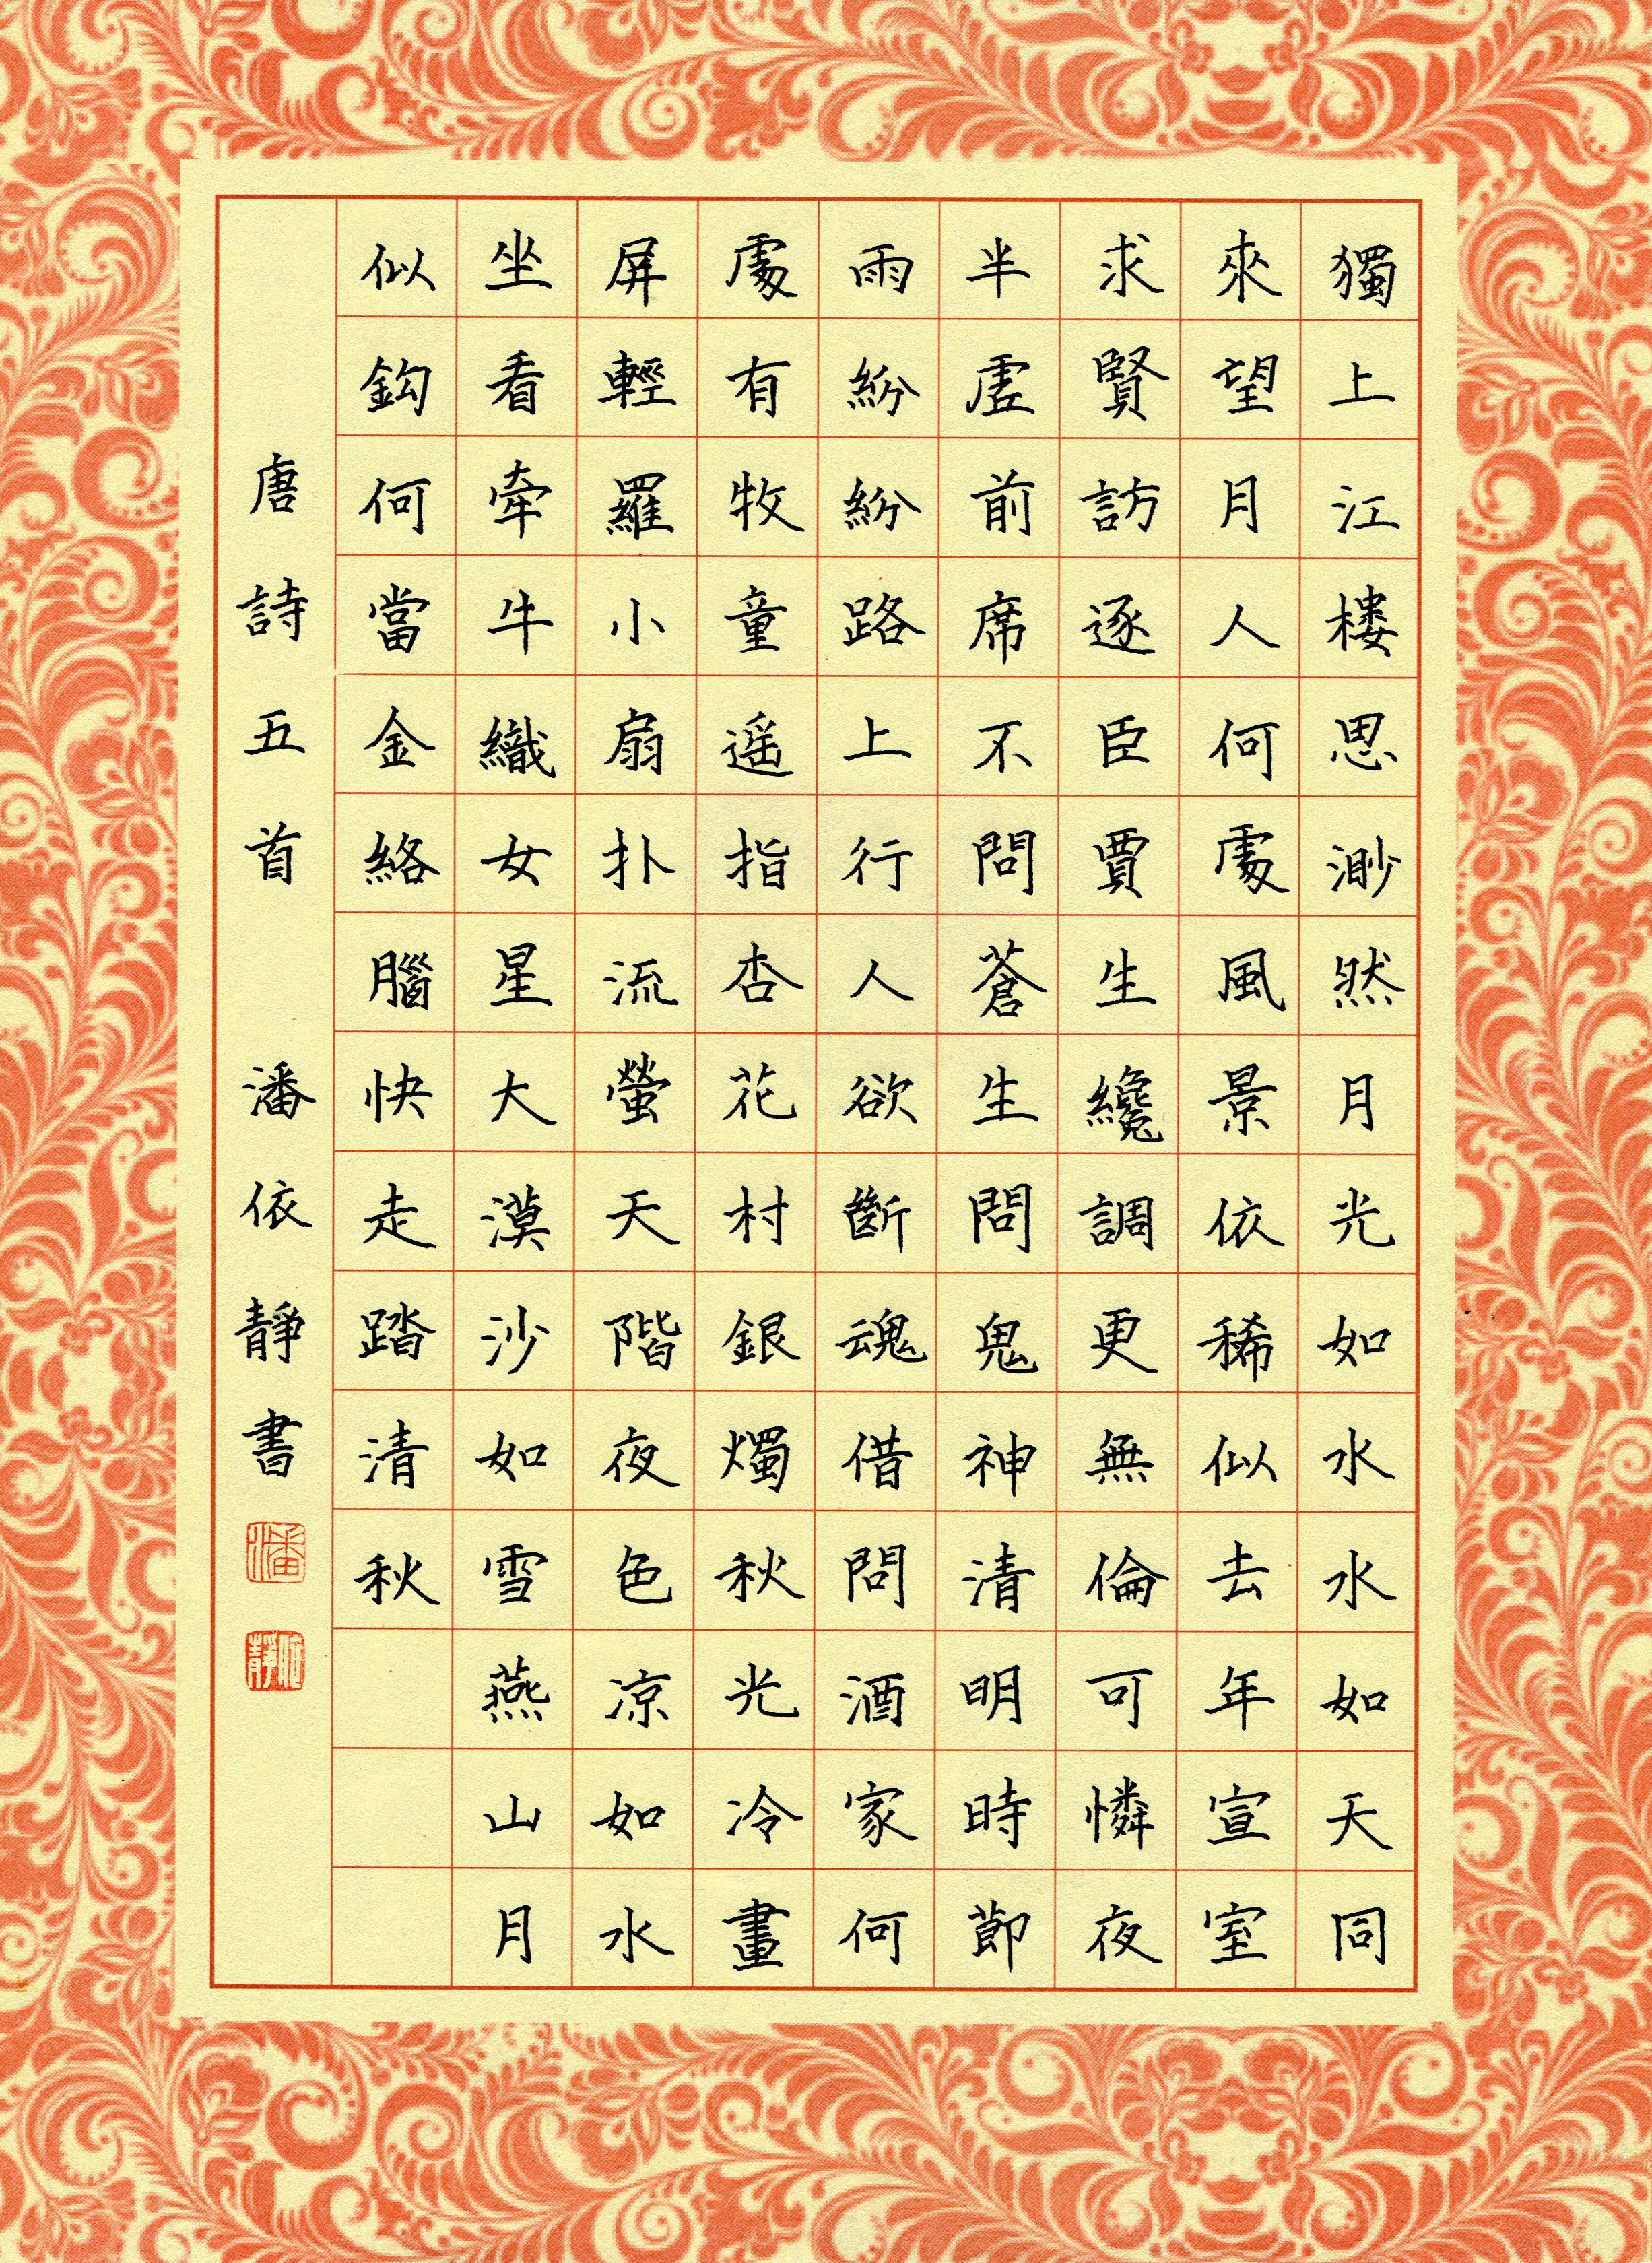 獨上江樓思渺然月光如水水如天同
來望月人何處風景依稀似去年宣室
求賢訪逐臣賈生纔調更無倫可憐夜
半虛前席不問蒼生問鬼神清明時節
雨紛紛路上行人欲斷魂借問酒家何
處有牧童遥指杏花村銀燭秋光冷畫
屏輕羅小扇扑流螢天階夜色凉如水
坐看牽牛織女星大漠沙如雪燕山月
似鈎何當金絡腦快走踏清秋
唐詩五首 潘依靜書
潘
依靜